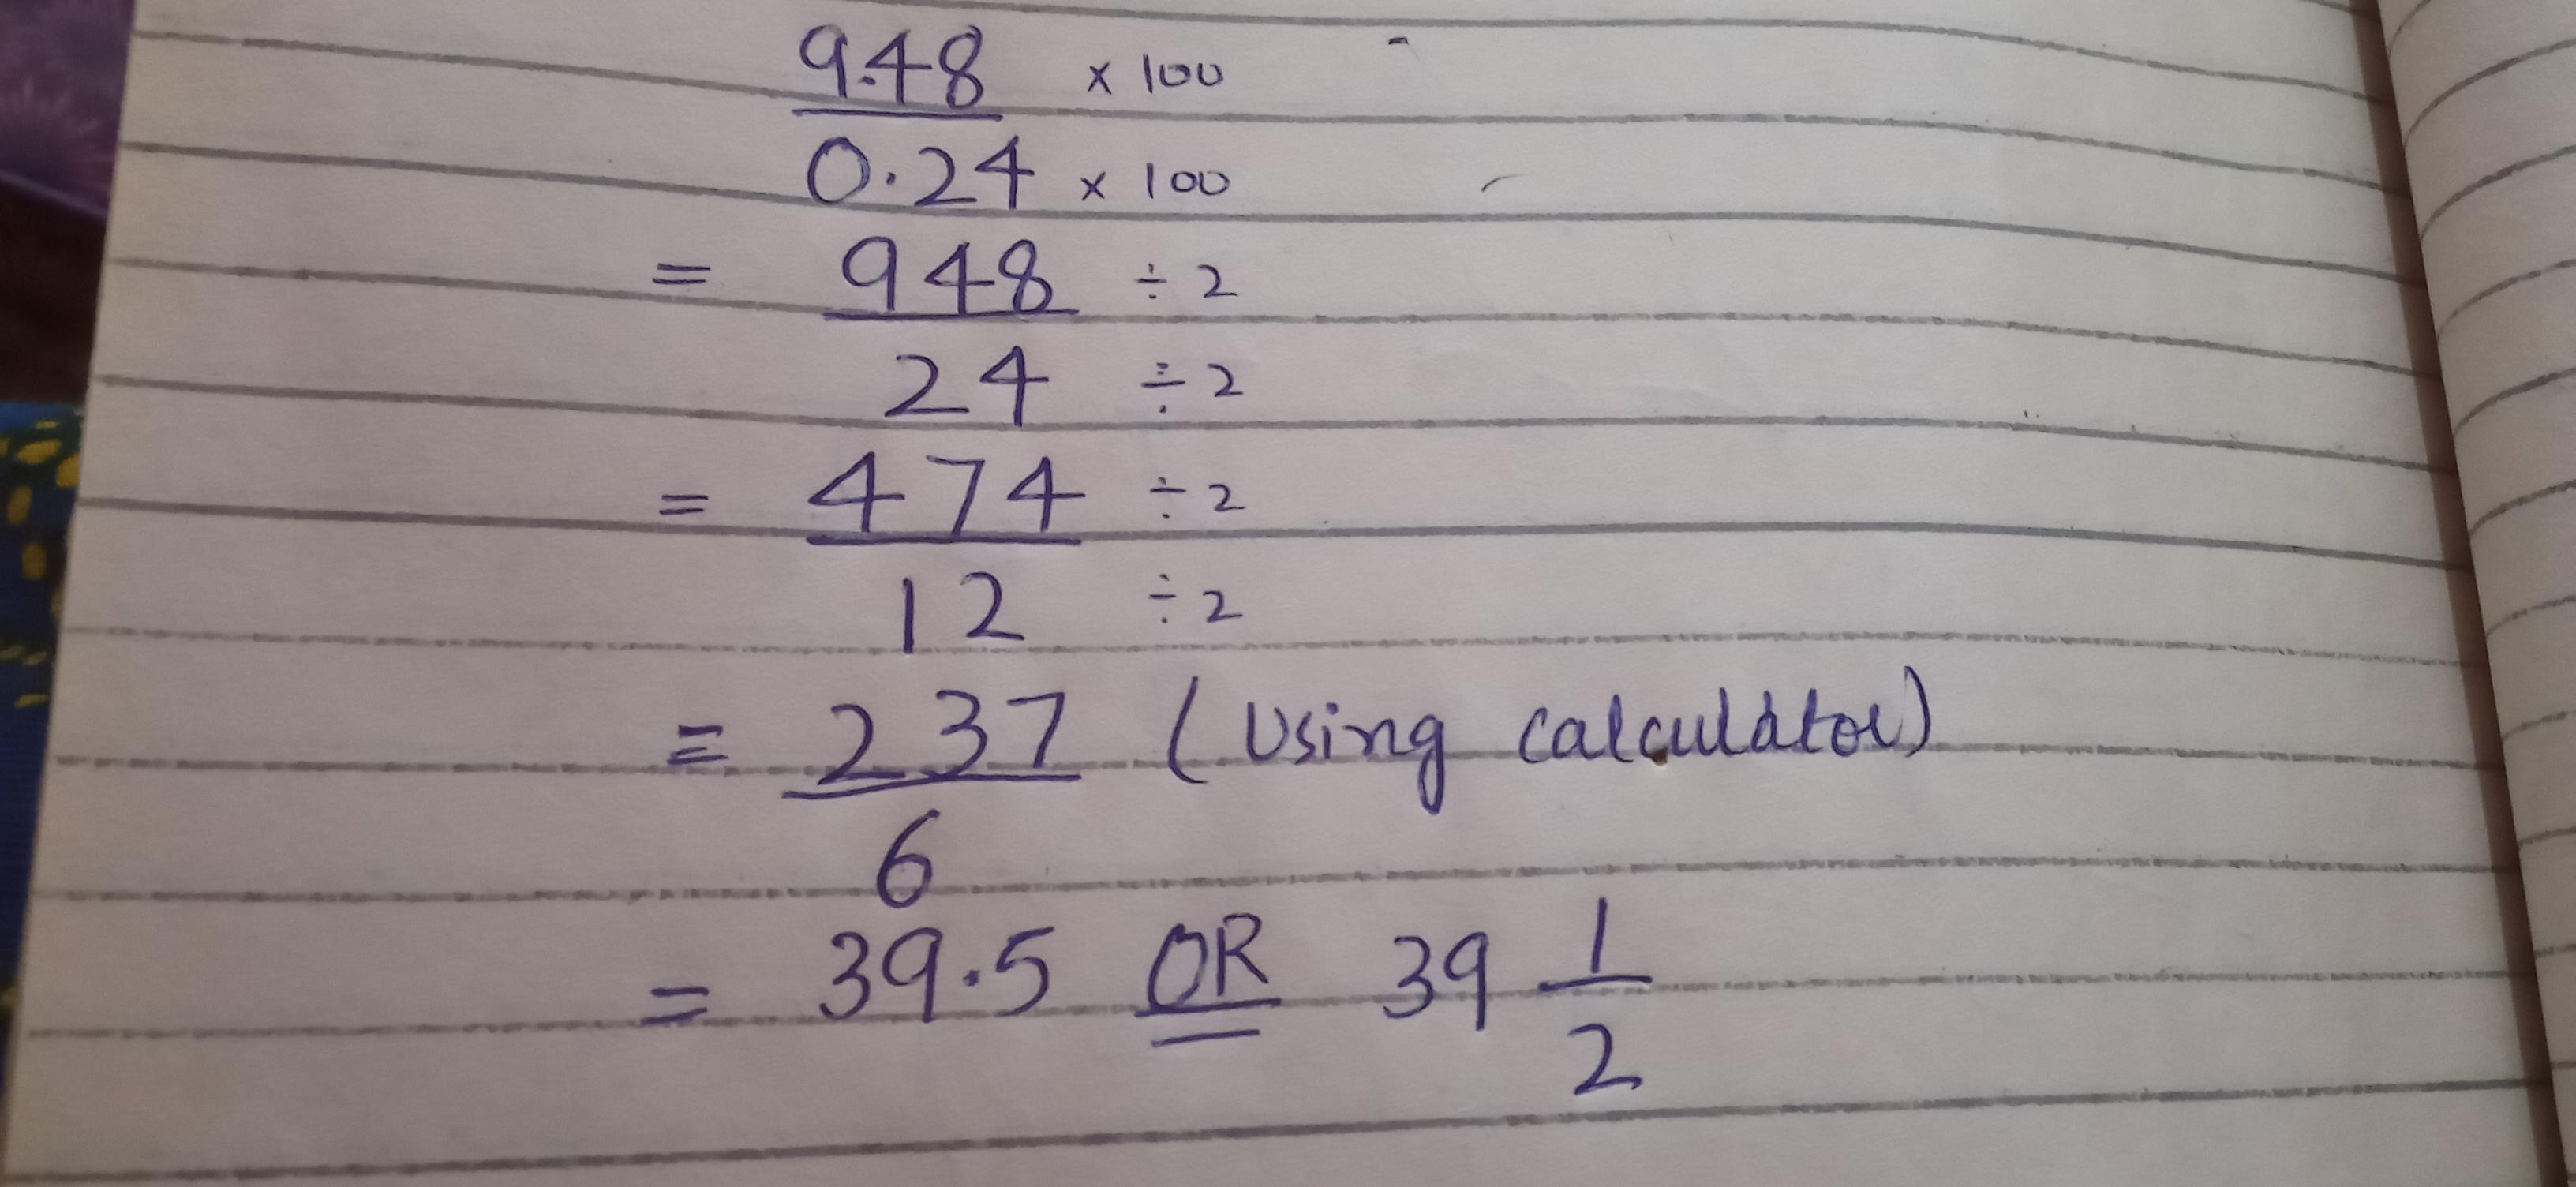 9.48 × 100
0.24 × 100
= 948 ÷ 2
24 ÷ 2
= 474 ÷ 2
12 ÷ 2
= 237 (Using calculator)
6
= 39.5 OR 39 1
2